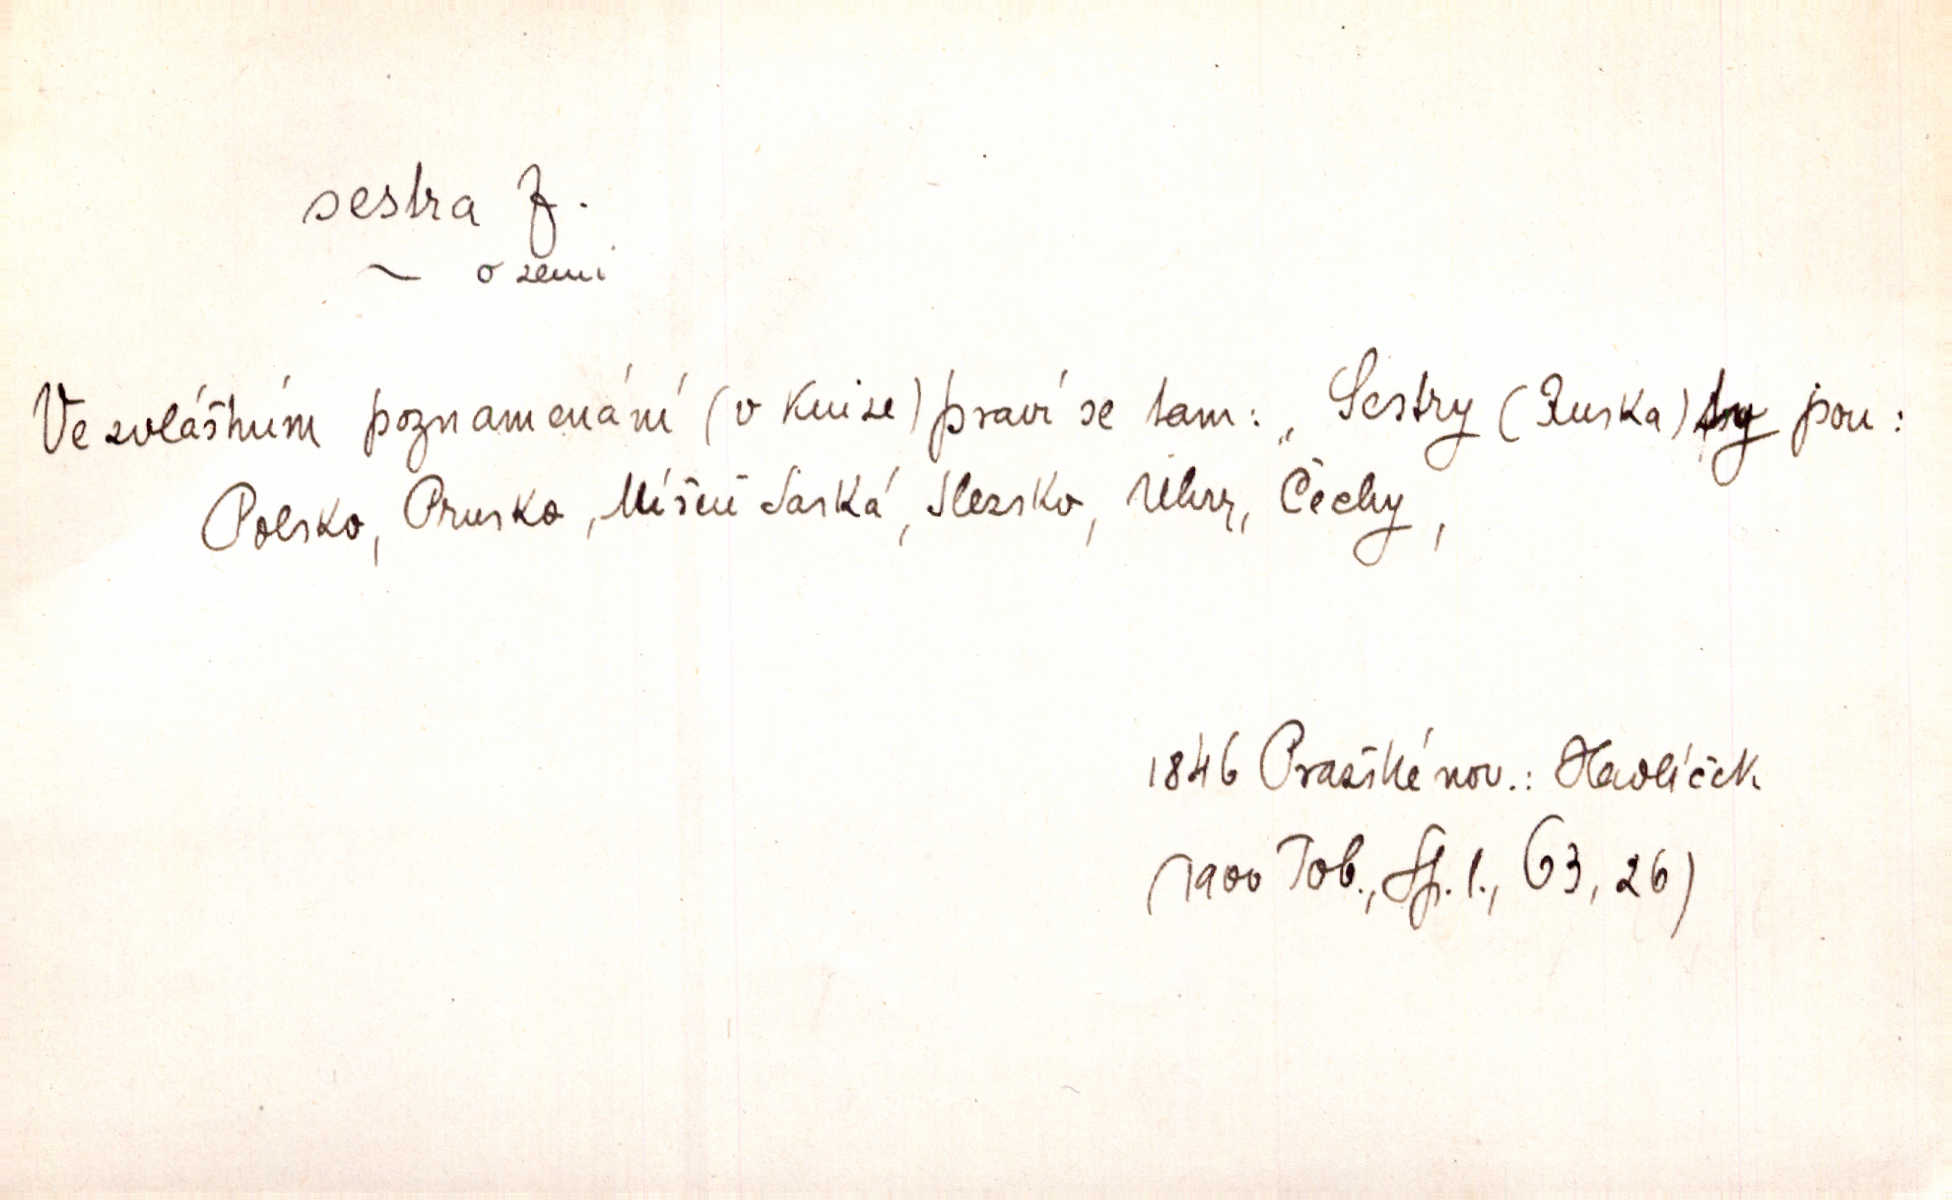 sestra f.
~ o zemi
Ve zvláštním poznamenání (v knize) praví se tam: „Sestry (Ruska) ty jsou:
Polsko, Prusko, Míšeň Saská, Slezsko, Uhry, Čechy,
1846 Pražské nov.: Havlíček
(1900 Tob., Sp. I., 63, 26)